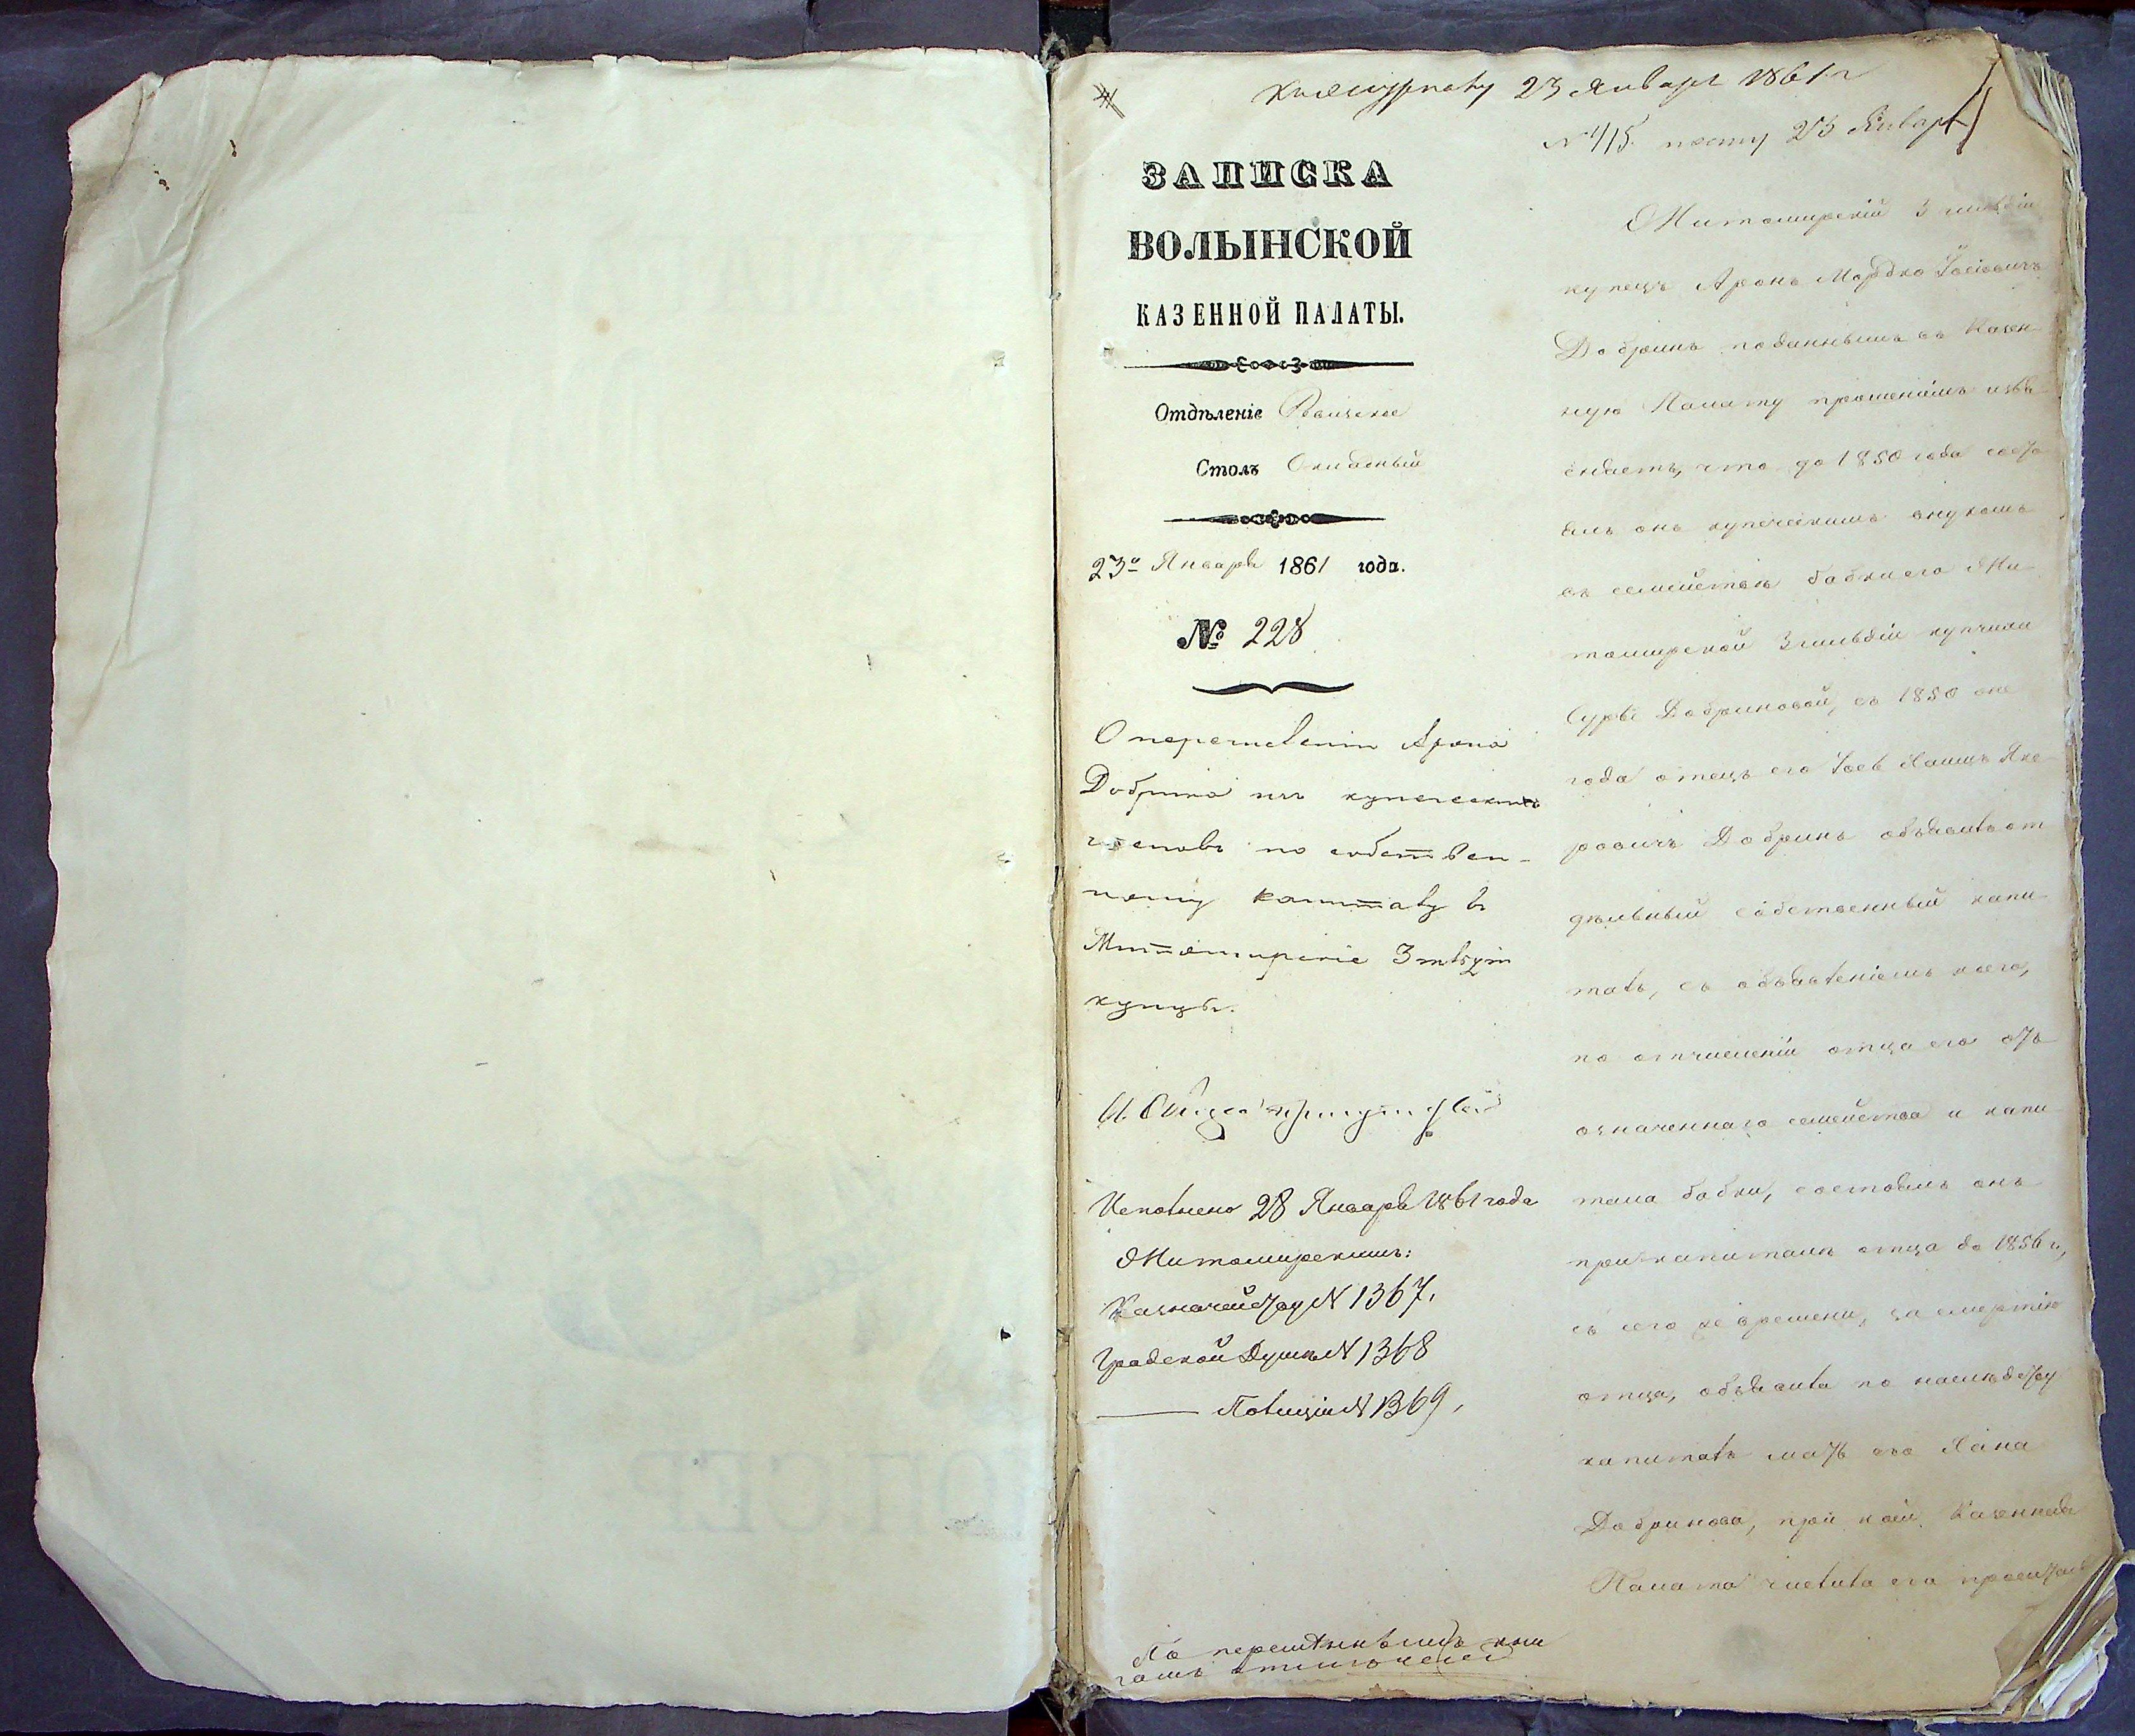 23 Января 1861 г
№ 415. 23 Января
ЗАПИСКА
ВОЛЫНСКОЙ
КАЗЕННОЙ ПАЛАТЫ.
Отдѣленіе Ревизское
Столъ Окладный
23го Января 1861 года.
№ 228
О перечисленіи Арона
Добрина изъ купеческихъ
членовъ по собствен-
ному капиталу въ
Житомирскіе 3 гильдіи
купцы.
Исполнено 28 Января 1861 года
Житомирскимъ:
Казначейству № 1367.
Градской Думѣ № 1368
Полиціи № 1369.
По перечневымъ кни
гамъ отмѣчено
Житомирскій 3 гильдіи
купецъ Аронъ Мордко Іосіовичъ
Добринъ поданнымъ въ Казен-
ную Палату прошеніемъ изъя-
сняетъ, что до 1850 года состо
ялъ онъ купеческимъ внукомъ
въ семействѣ бабки его Жи-
томирской 3 гильдіи купчихи
Суры Добриновой, съ 1850 же
года отецъ его Іось Хаимъ Янке
ровичъ Добринъ объявилъ от
дѣльный собственный капи-
талъ, съ объявленіемъ коего,
по отчисленіи отца его отъ
означеннаго семейства и капи
тала бабки, состоялъ онъ
при капиталѣ отца до 1856 г.,
съ сего же времени, за смертію
отца, объявила по наслѣдству
капиталъ мать его Хана
Добринова, при коей Казенная
Палата числила его